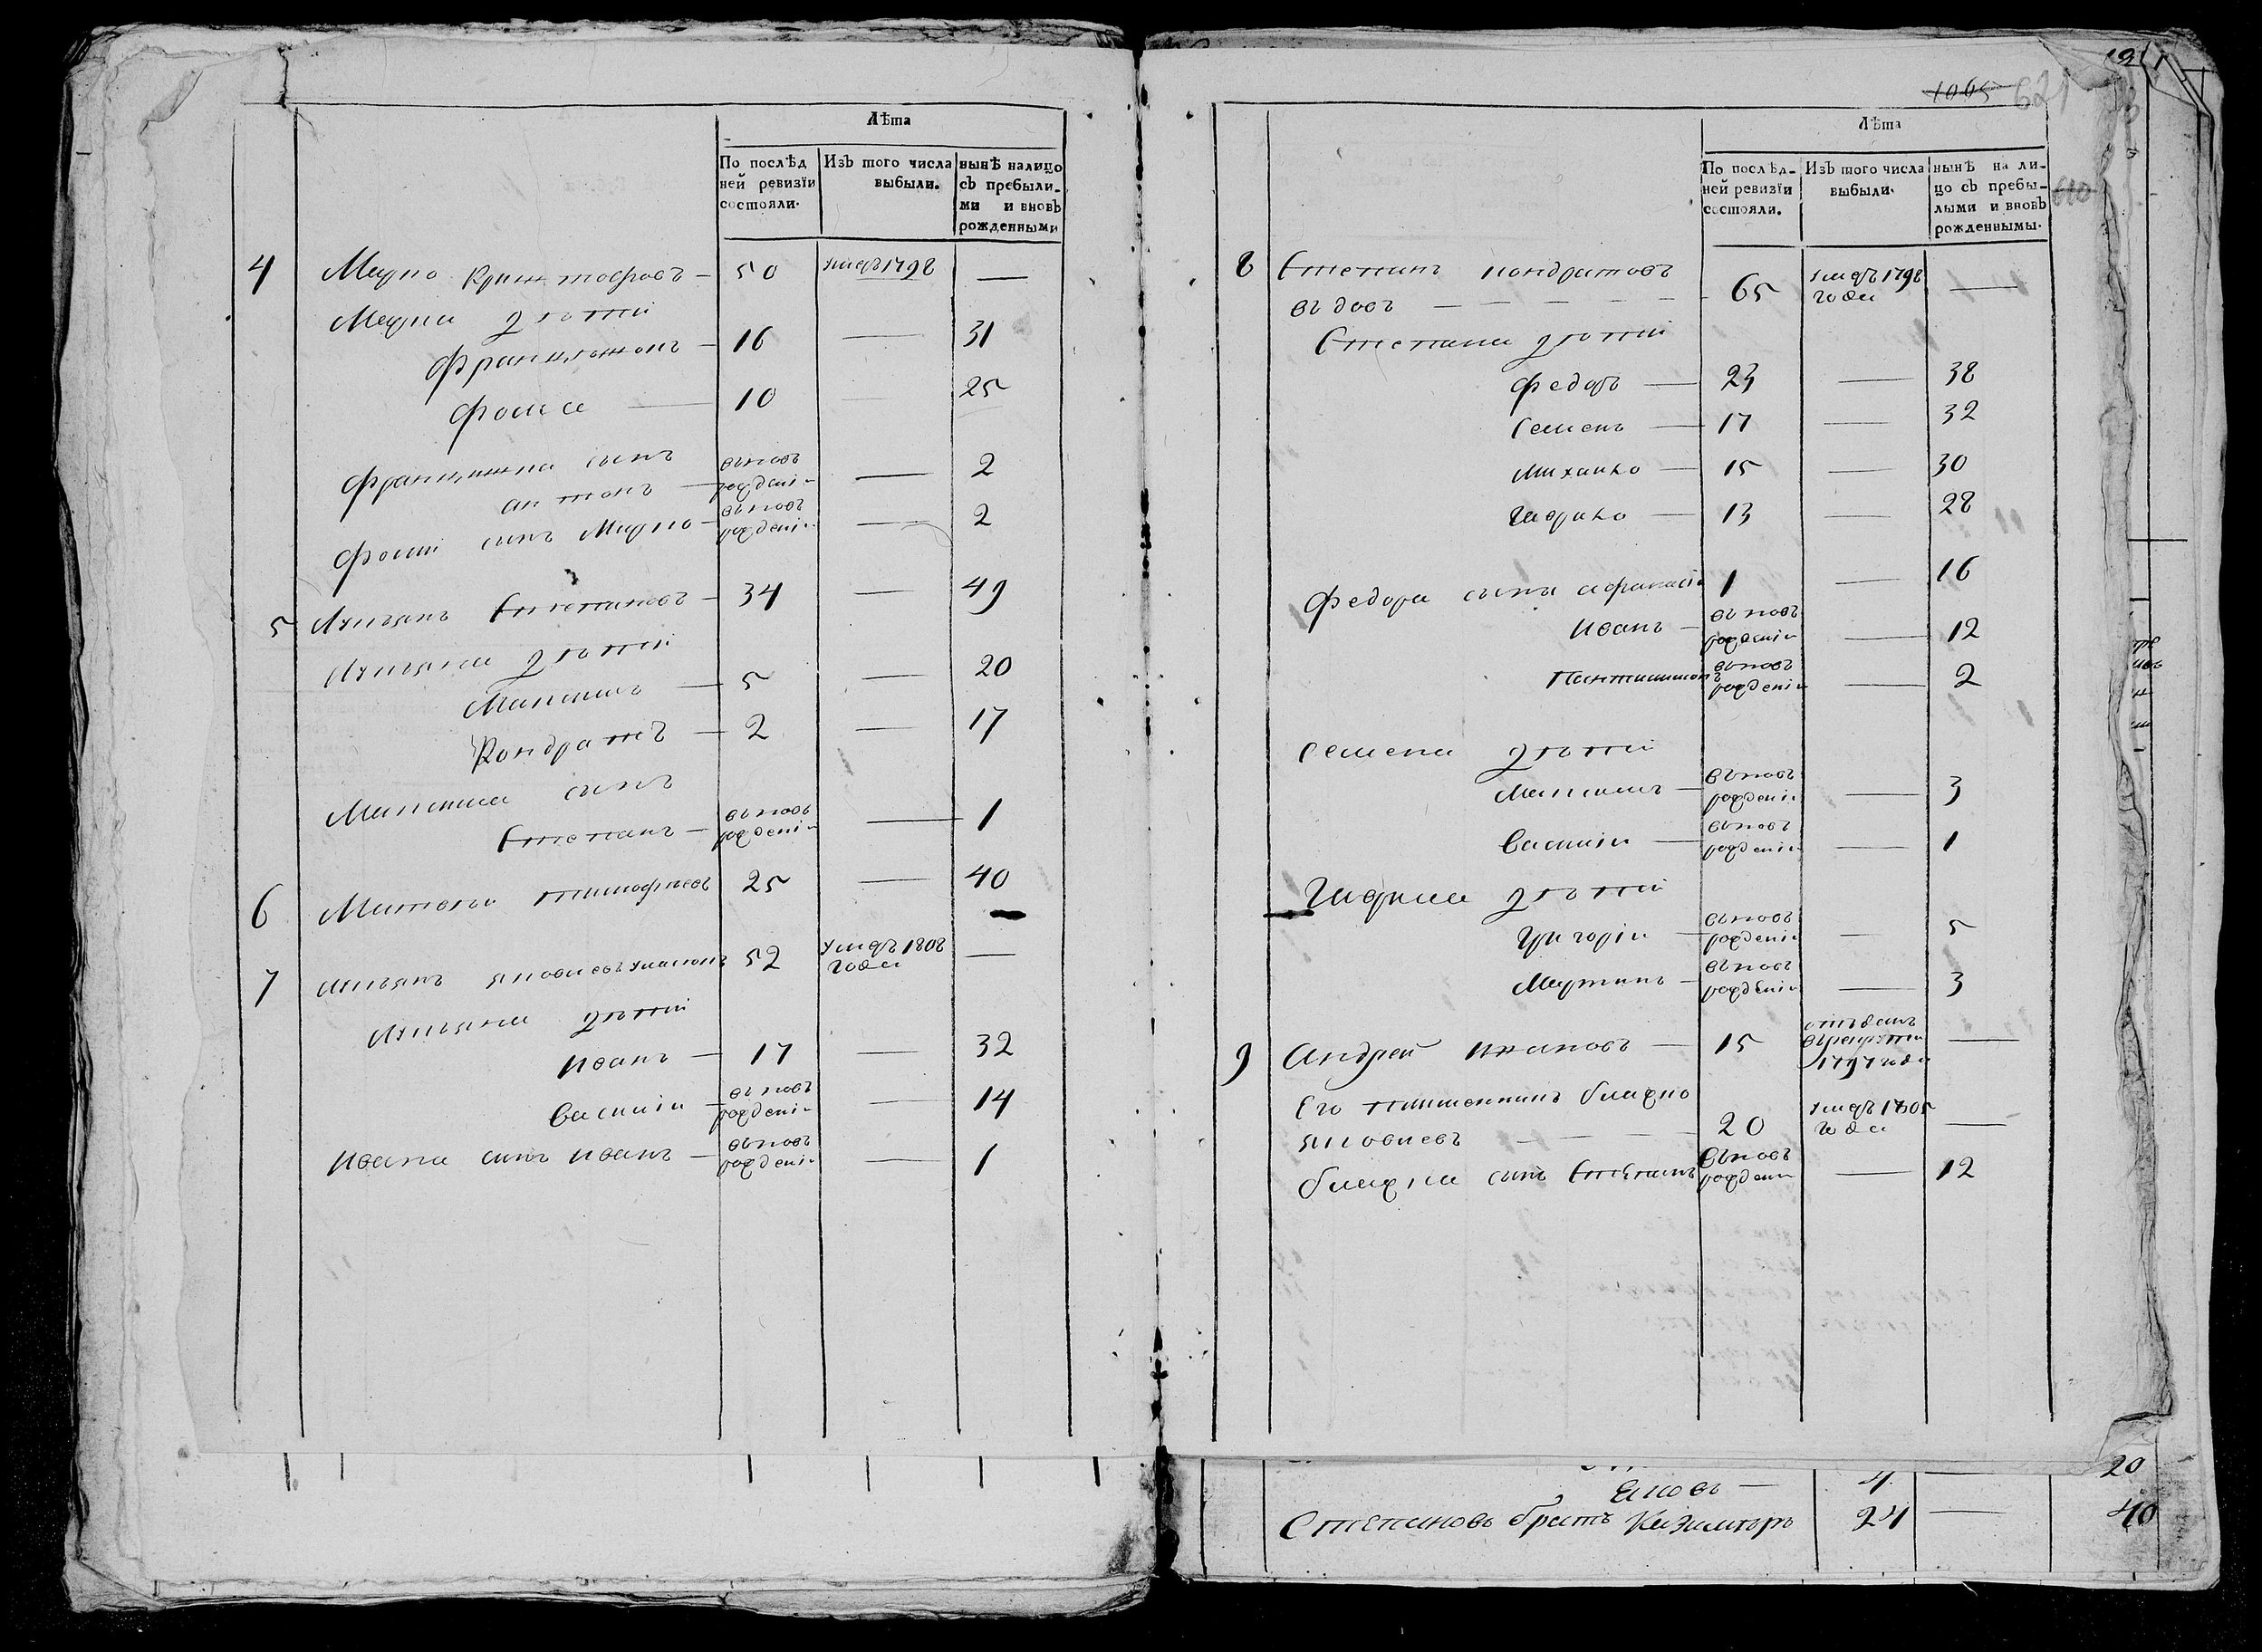 Лѣта
По послѣд
ней ревизїи
состояли.
Изъ того числа
выбыли.
нынѣ налицо
съ пребыли-
ми и вновь
рожденными
4 Марко Криштофровъ — 50 умеръ 1798 —
Марка дѣти
Францишокъ — 16 — 31
Фома — 10 — 25
Францишка сынъ
антонъ — вновъ рожденъ — 2
Фомы сынъ Марко — вновъ рожденъ — 2
5 Лукьянъ Степановъ — 34 — 49
Лукьяна дѣти
Максимъ — 5 — 20
Кондратъ — 2 — 17
Максима сынъ
Степанъ — вновъ рожденъ — 1
6 Матвей тимофеевъ 25 — 40
7 Лукьянъ яковлевъ 52 умеръ 1808 года —
Лукьяна дѣти
иванъ — 17 — 32
василiи — вновъ рожденъ — 14
ивана сынъ иванъ — вновъ рожденъ — 1
1065 621
610
Лѣта
По послѣд-
ней ревизїи
состояли.
Изъ того числа
выбыли.
нынѣ на ли-
цо съ пребы-
лыми и вновь
рожденнымы.
8 Степанъ кондратовъ
вдовъ — — — — 65 умеръ 1798 года —
Степана дѣти
Федоръ — 23 — 38
Семенъ — 17 — 32
Михаило — 15 — 30
Гаврило — 13 — 28
Федора сынъ афанасiи 1 — 16
иванъ — вновъ рожденъ — 12
Пантилимонъ вновъ рожденъ — 2
Семена дѣти
Максимъ — вновъ рожденъ — 3
Василiи — вновъ рожденъ — 1
Гаврила дѣти
Григорiи — вновъ рожденъ — 5
Мартинъ — вновъ рожденъ — 3
9 Андрей — 15 отъданъ врекруты 1797 года —
Его племенникъ
яковлевъ — — — 20 умеръ 1805 года —
сынъ Степанъ вновъ рожденъ — 12
20
Яковъ — 4 —
Степановъ братъ Казимиръ 24 — 40